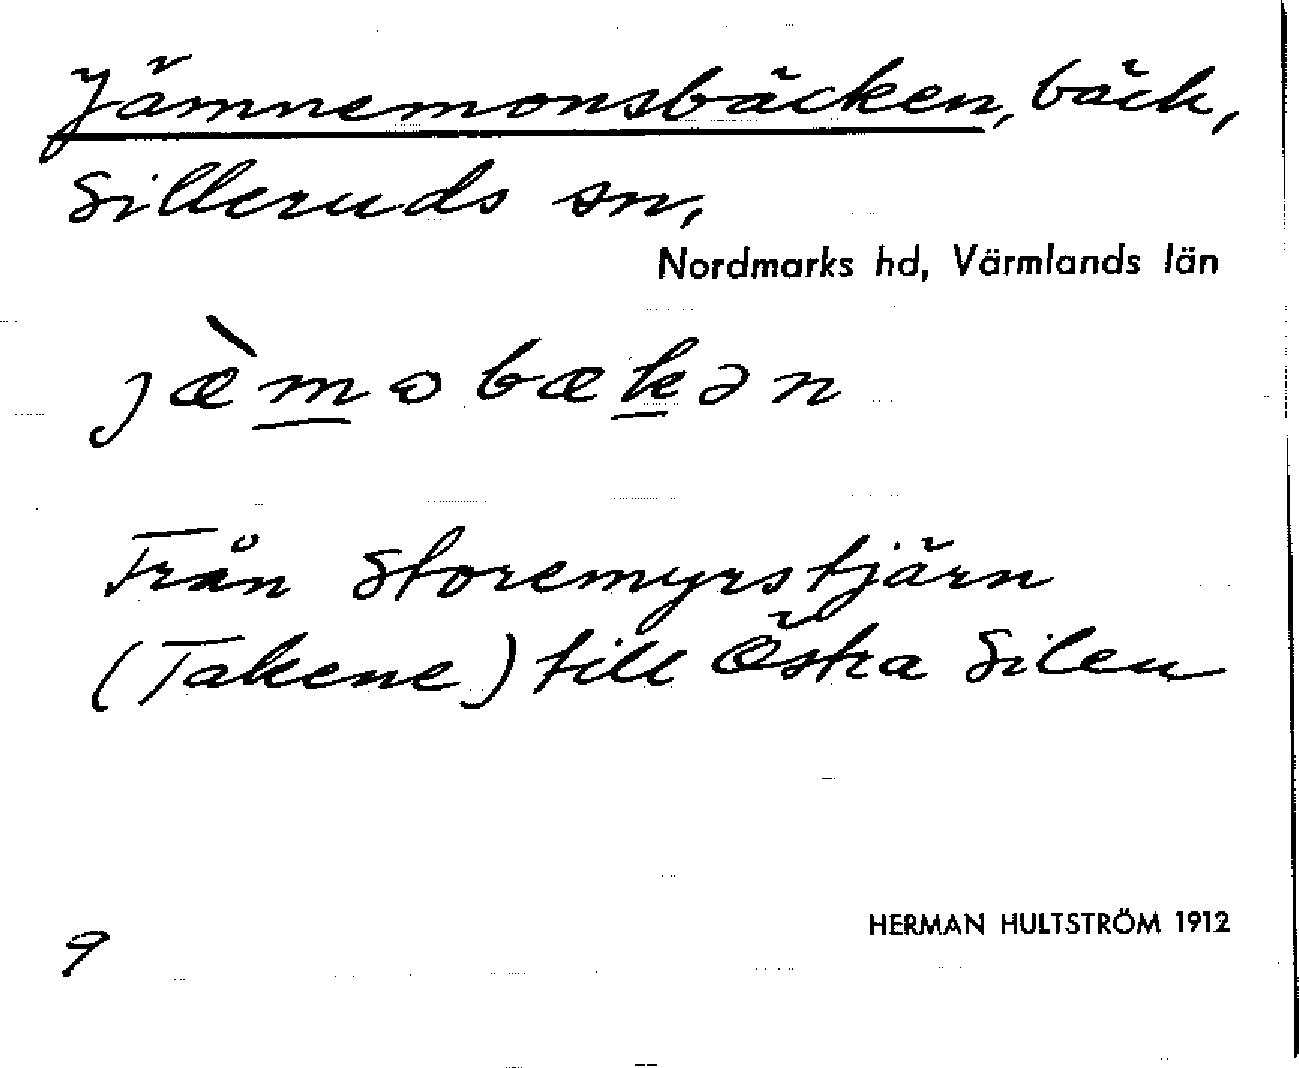 Jämnemonsbäcken, bäck,
Silleruds sn,
Nordmarks hd, Värmlands län
jæ̀m̲ɷbæk̲ən
Från Storemyrstjärn
(Takene) till Östra Silen
HERMAN HULTSTRÖM 1912
9